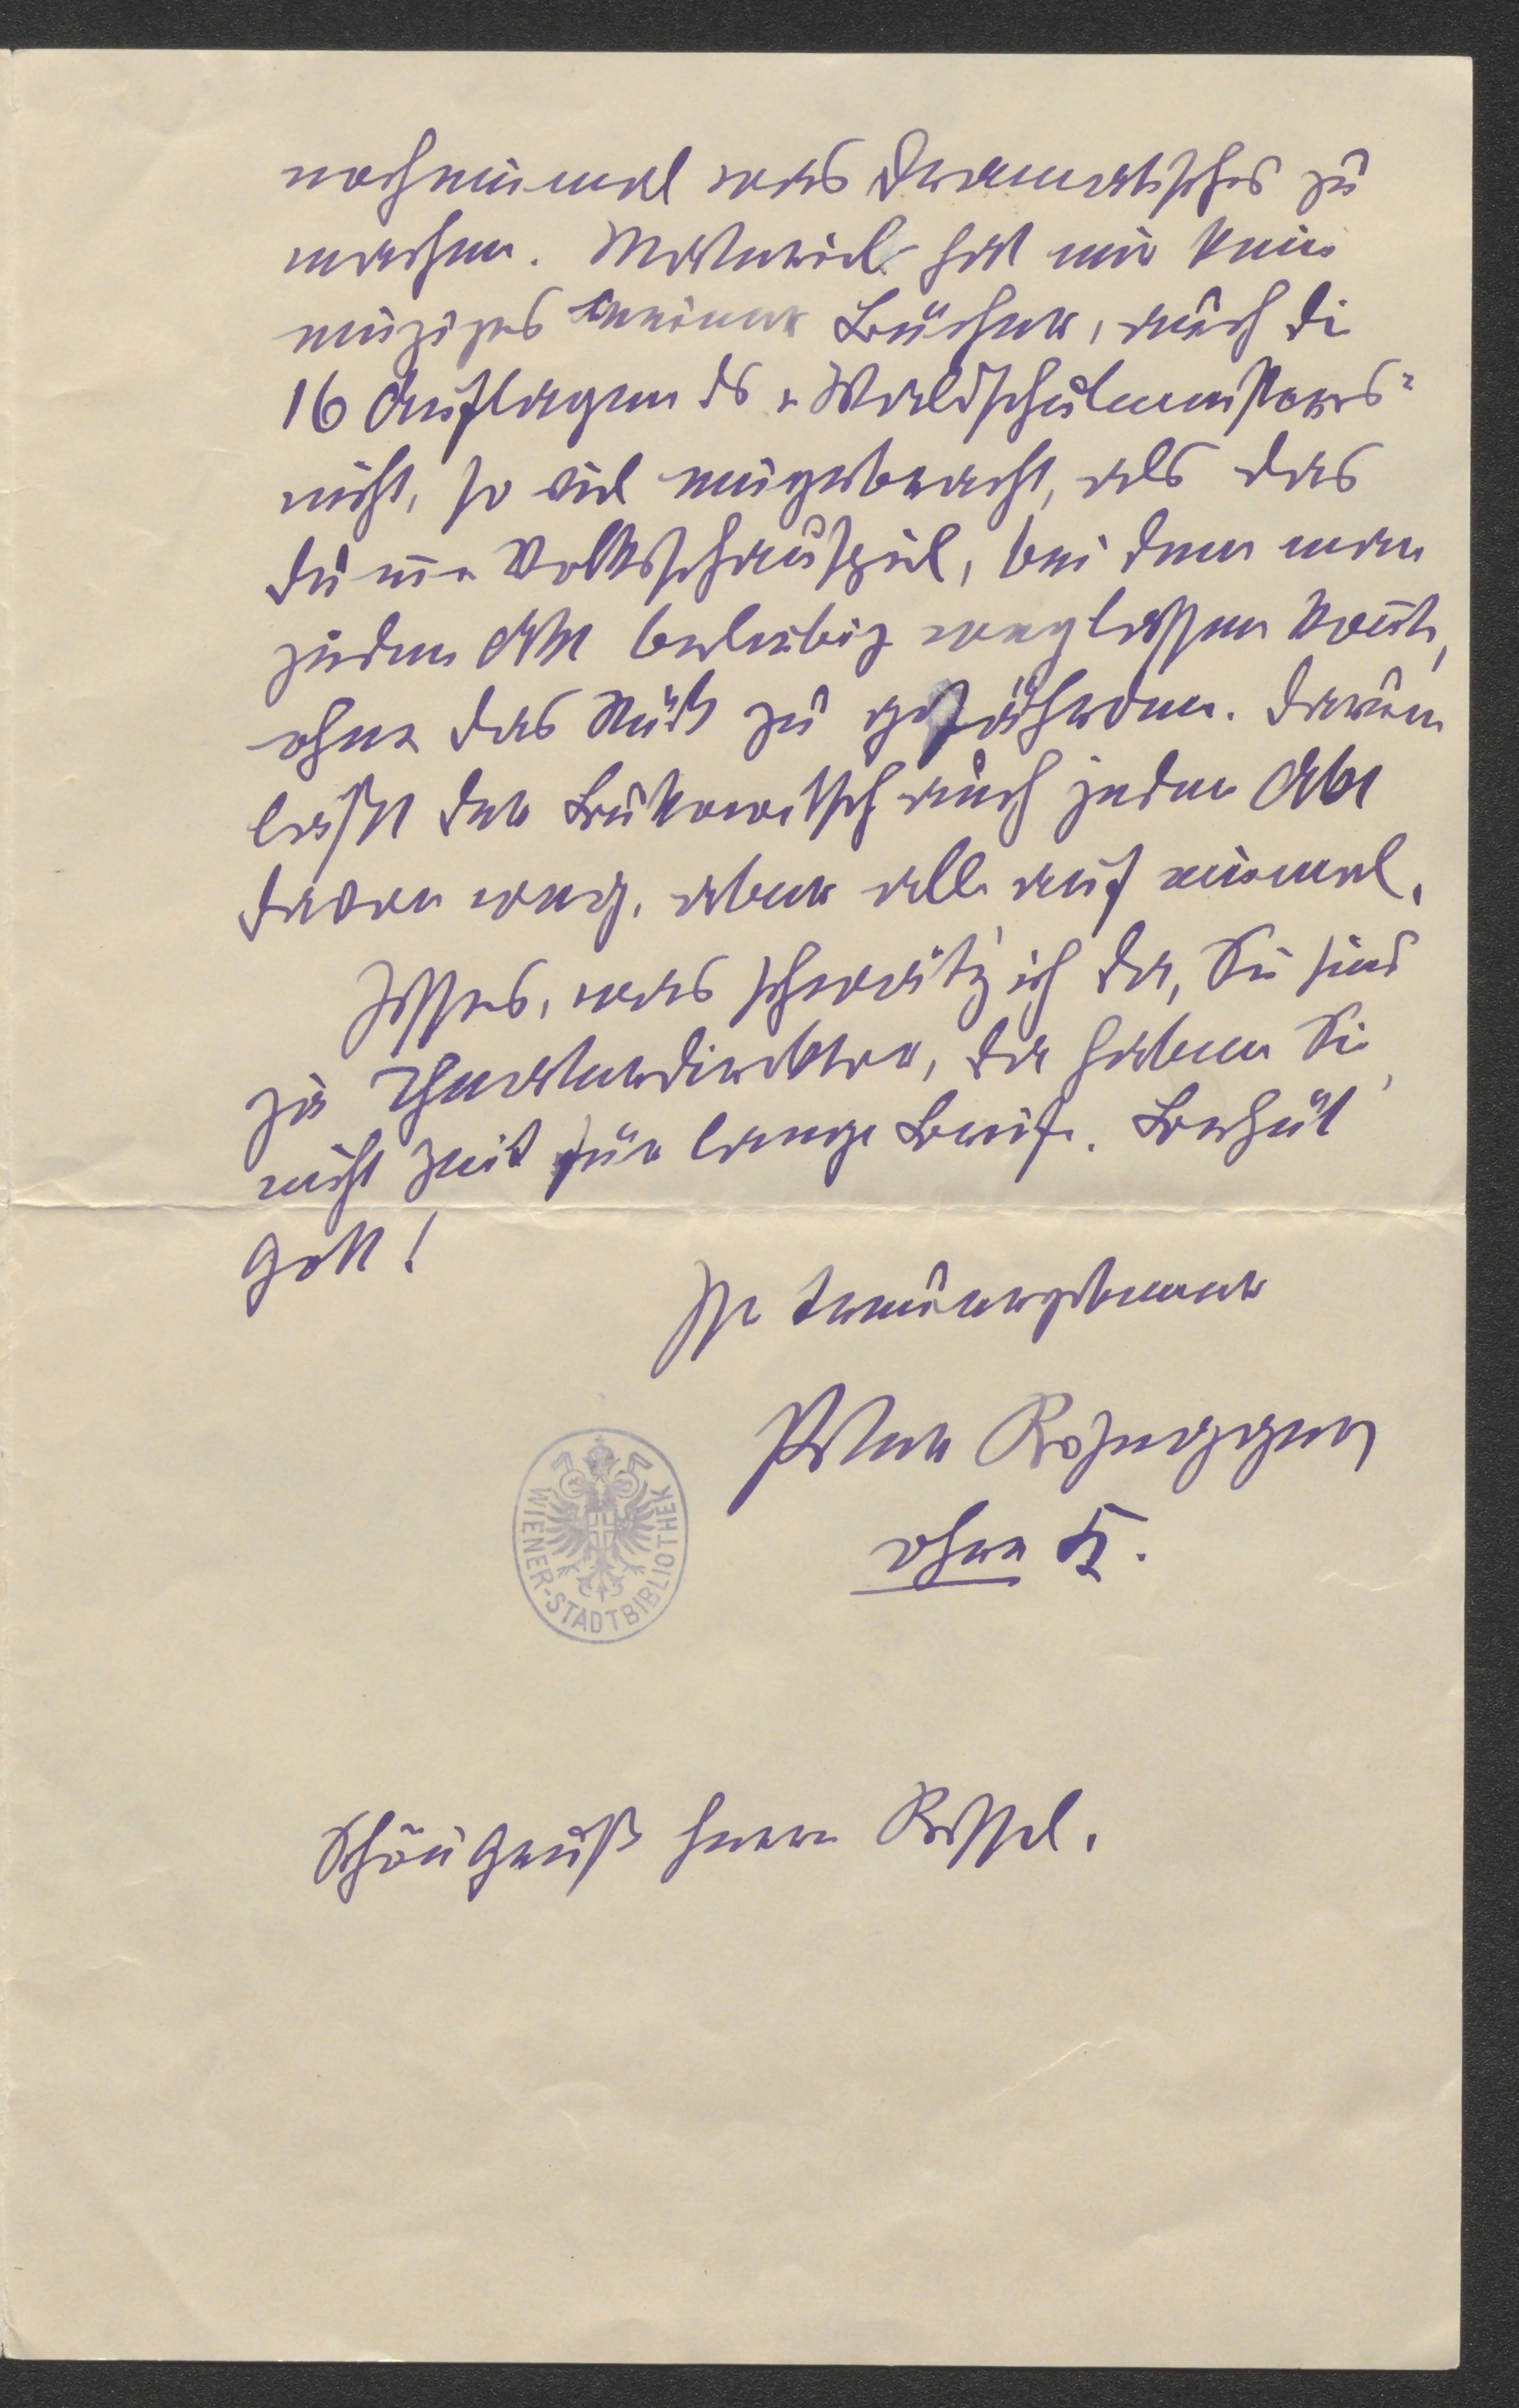 nocheinmal was Dramatisches zu
machen. Materiel hat mir kein
einziges meiner Bücher, auch die
16 Auflagen des „Waldschulmeisters"
nicht, so viel eingebracht, als das
dumme Volksschauspiel, bei dem man
jeden Akt beliebig weglassen konnte,
ohne das Stück zu gefährden. Darum
lasst der Bukowitsch auch jeden Akt
davon weg, aber alle auf einmal.
Jesses, was schwätz' ich da, Sie sind
ja Theaterdirektor, da haben Sie
nicht Zeit für lange Briefe. Behüt'
Gott!
Ihr treuergebener
Peter Rosegger
ohne K.
WIENER-STADTBIBLIOTHEK
Schön Gruß Herrn